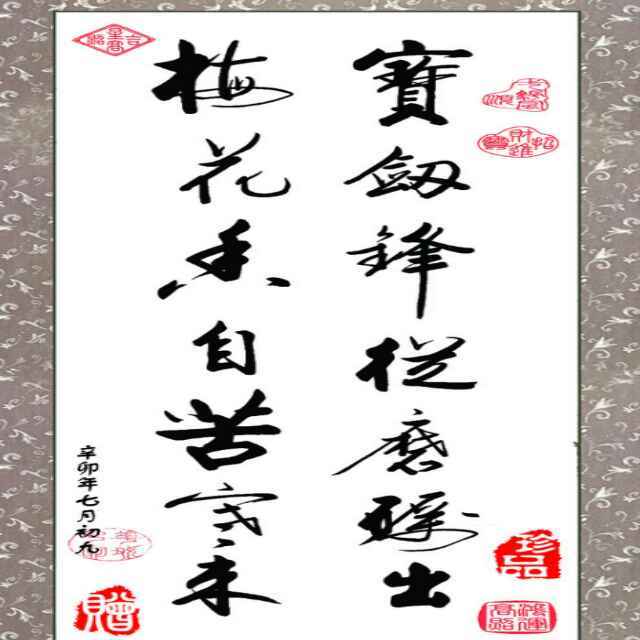 寶劔鋒從磨礪出
梅花香自苦寒來
辛卯年七月初九
珍品
贈
招財進寶